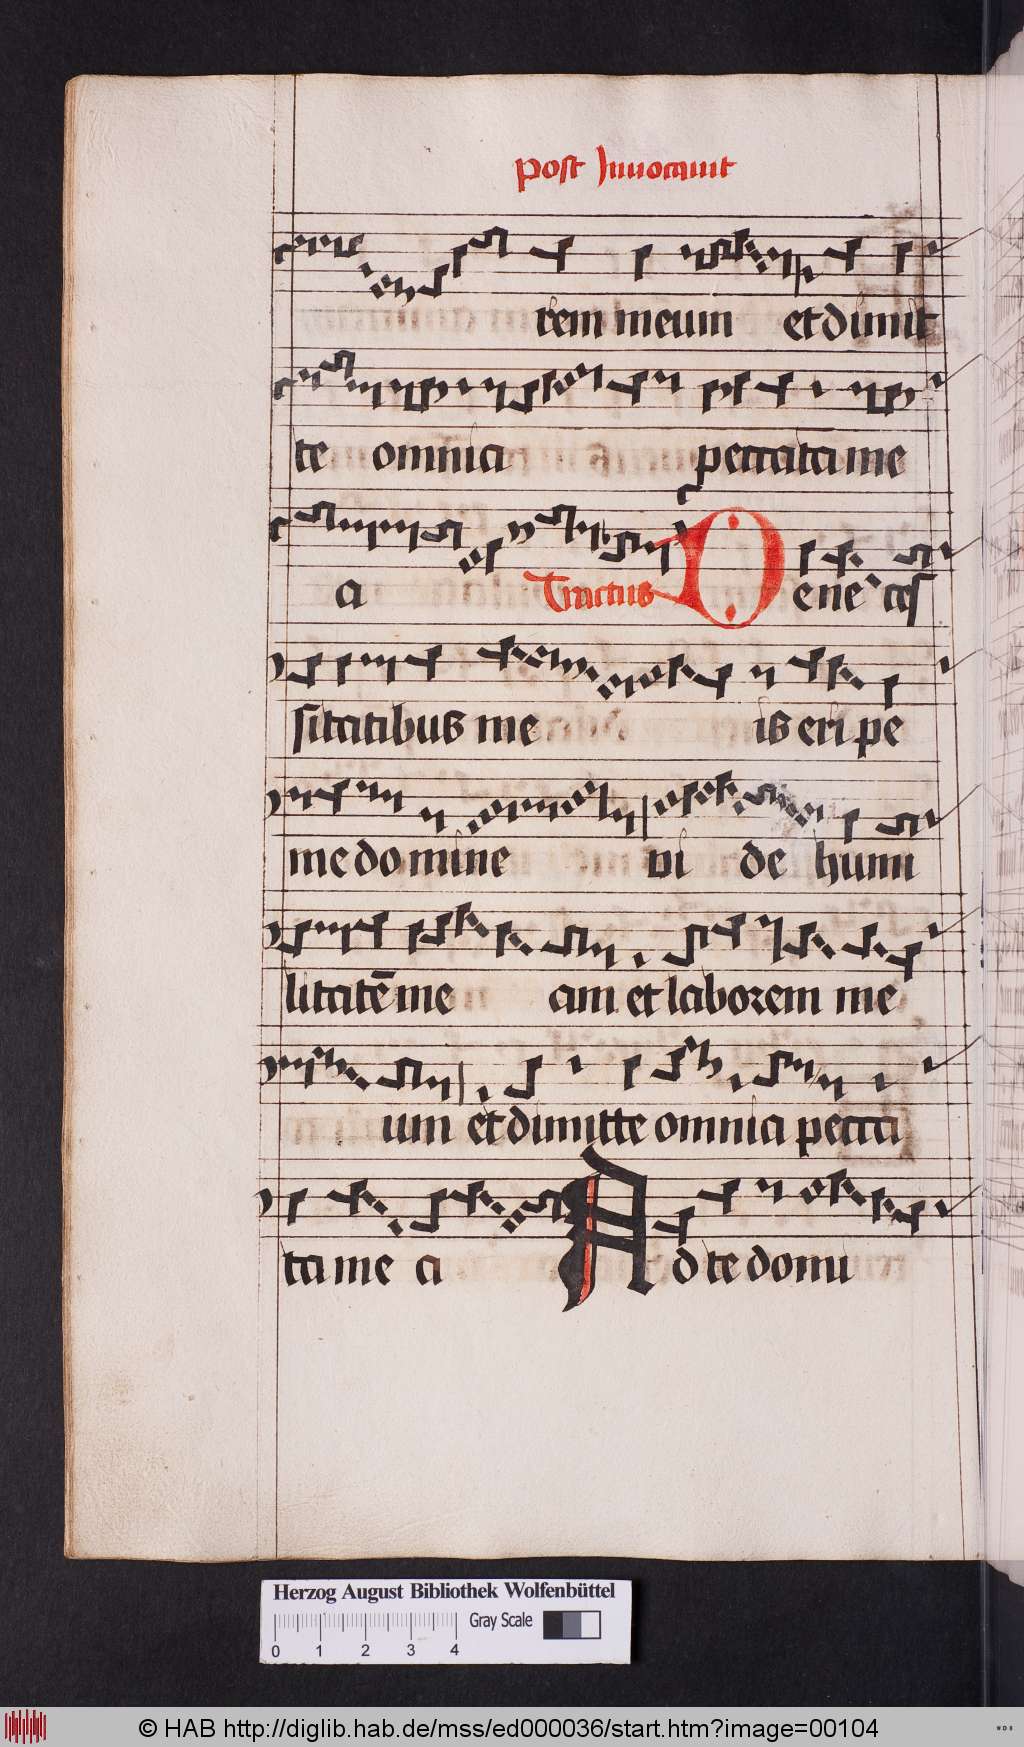 post Inuocauit
rem meum et dimit
te omnia peccata me
a Tractus De ne ces
sitatibus me is eri pe
me domine vi de humi
litatē me am et laborem me
um et dimitte omnia pecca
ta me a Ad te domi
Herzog August Bibliothek Wolfenbüttel
Gray Scale
0 1 2 3 4
© HAB http://diglib.hab.de/mss/ed000036/start.htm?image=00104